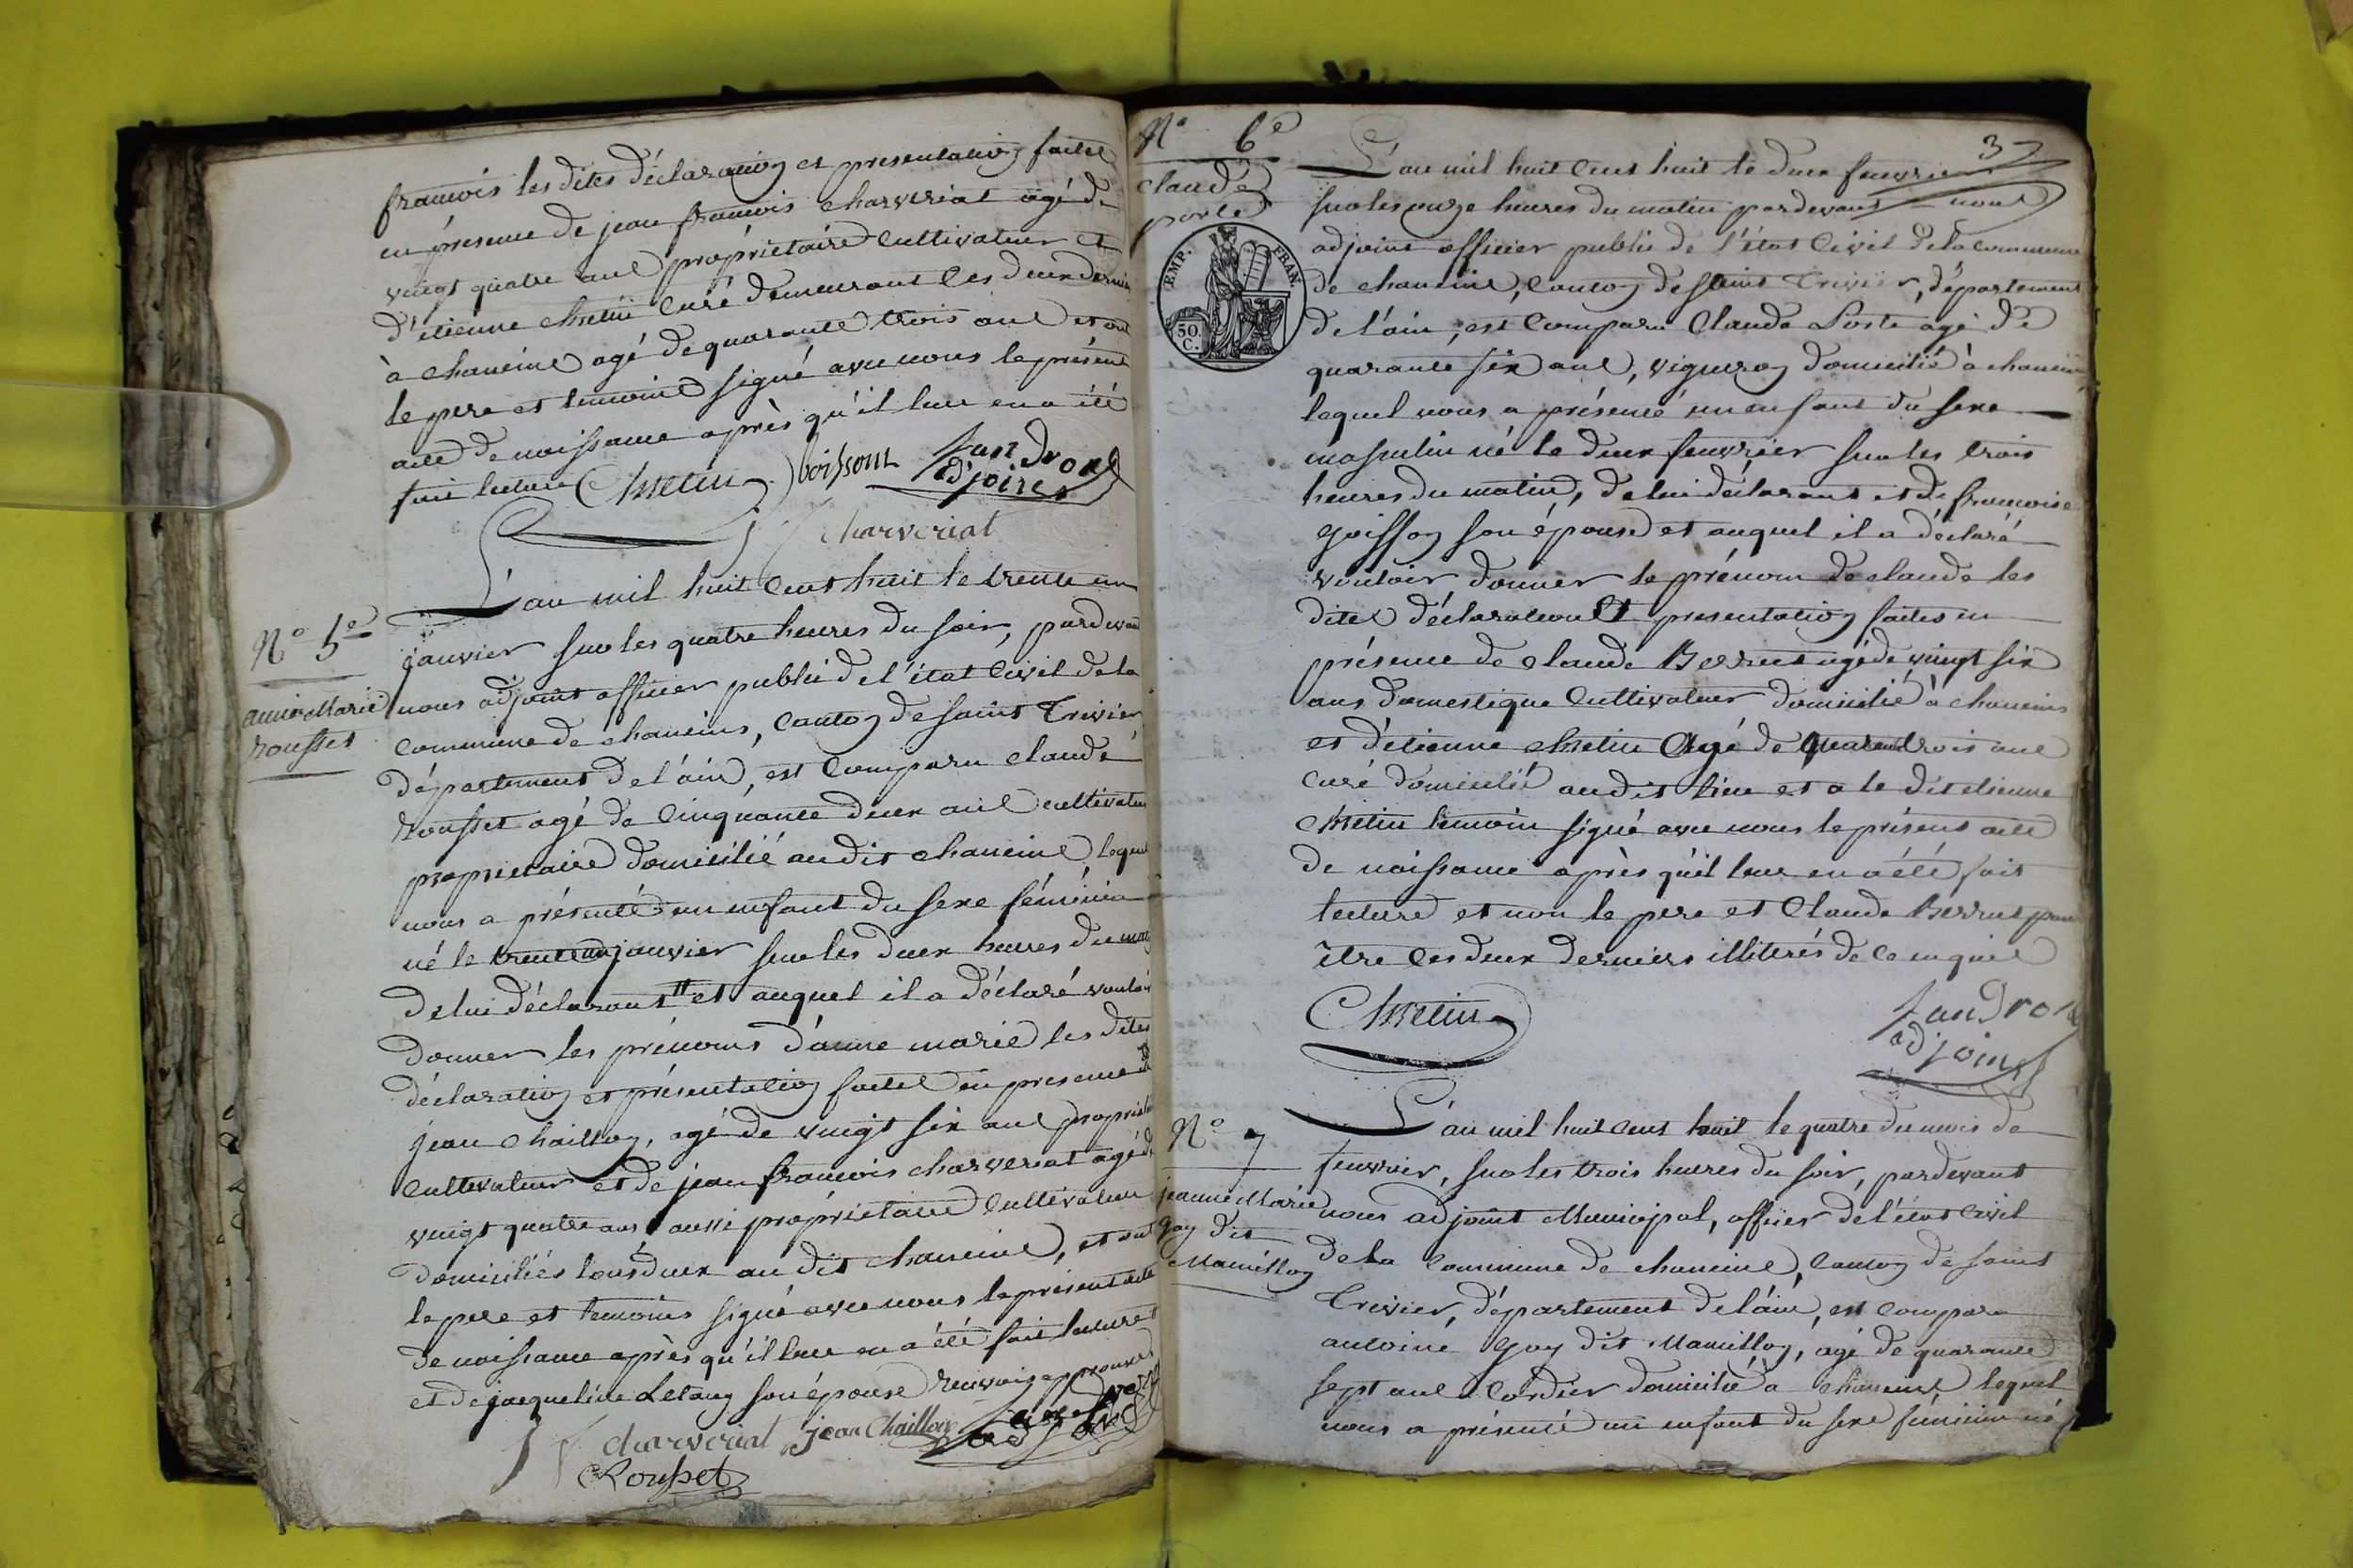 francois les dites déclaration et presentation faites
en présence de jean francois charveriat agé de
vingt quatre ans propriétaire cultivateur et
d'étienne chretin curé demeurant les deux derniers
à chaneins agé de quarante trois ans et ont
le pere et temoins signé avec nous le présent
acte de naissance après qu'il leur en a été
fait lecture Chretin boissom Jandrone
adjoint
Charveriat
N° 5e
anne Marie
rousset
L'an mil huit cent huit le trente un
janvier sur les quatre heures du soir, pardevant
nous adjoint officier public de l'état civil de la
commune de chaneins, canton de saint Trivier
département de l'ain, est comparu claude
rousset agé de cinquante deux ans cultivateur
proprietaire domicilié au dit chaneins lequel
nous a présenté un enfant du sexe féminin
né le trente un janvier sur les deux heures du
de lui déclarant et auquel il a déclaré vouloir
donner les prénoms d'anne marie les dites
déclaration et présentation faites en presence de
jean chaillon, agé de vingt six ans propriétaire
cultivateur et de jean francois charveriat agé de
vingt quatre ans aussi propriétaire cultivateur
domiciliés tous deux au dit chaneins, et ont
le pere et temoins signé avec nous le présent acte
de naissance après qu'il leur en a été fait lecture
et de jacqueline Letang son épouse renvoi approuvé
charveriat jean Chaillon
adjoint
Rousset
37
N° 6e
claude
porte
EMP. FRAN.
50 C.
L'an mil huit cent huit le deux feuvrier
sur les onze heures du matin pardevant nous
adjoint officier public de l'état civil de la commune
de chaneins, canton de saint Trivier, département
de l'ain, est comparu Claude Porte agé de
quarante six ans, vigneron domicilié à chaneins
lequel nous a présenté un enfant du sexe
masculin né le deux feuvrier sur les trois
heures du matin, de lui déclarant et de francoise
goisson son épouse et auquel il a déclaré
vouloir donner le prénom de claude les
dites déclaration et presentation faites en
présence de claude Berrut agé de vingt six
ans domestique cultivateur domicilié à chaneins
et d'étienne chretin agé de quarante trois ans
curé domicilié au dit lieu et a le dit etienne
chretin temoin signé avec nous le présent acte
de naissance après qu'il leur en a été fait
lecture et non le pere et Claude Berrut pour
être ces deux derniers illiterés de ce enquis
Chretin Jandrone
adjoint
N° 7
jeanne Marie
goy dit
Mamillon
L'an mil huit cent huit le quatre du mois de
feuvrier, sur les trois heures du soir, pardevant
nous adjoint Municipal, officier de l'état civil
de la commune de chaneins, canton de saint
Trivier, département de l'ain, est comparu
antoine goy dit Mamillon, agé de quarante
sept ans cordier domicilié à chaneins lequel
nous a présenté un enfant du sexe féminin né